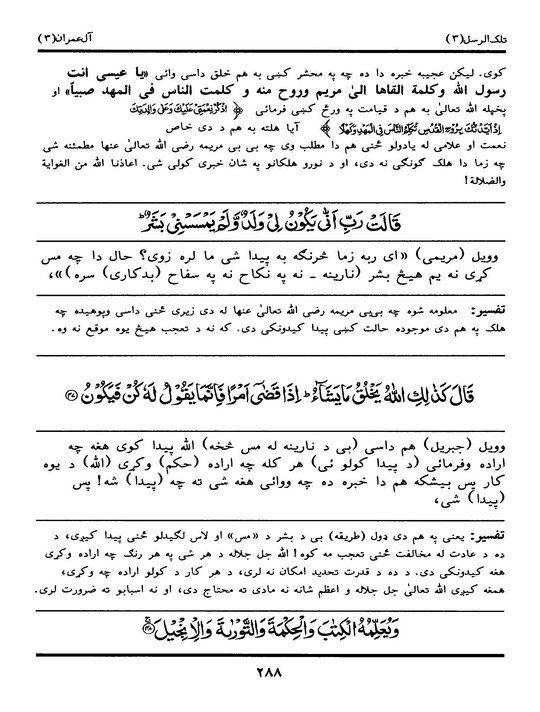 تلک الرسل (٣)
آل عمران (٣)
کوی. لیکن عجیبه خبره دا ده چه په محشر کښی به هم خلق داسی وائی «یا عیسی انت
رسول الله وکلمة القاها الیٰ مریم وروح منه و کلمت الناس فی المهد صبیاً» او
پخپله الله تعالیٰ به هم د قیامت په ورځ کښی فرمائی ﴿ اذْكُرْ نِعْمَتِیْ عَلَيْكَ وَعَلٰى وَالِدَتِكَ
اِذْ اَيَّدتُّكَ بِرُوْحِ الْقُدُسِ تُكَلِّمُ النَّاسَ فِی الْمَهْدِ وَكَهْلًا ﴾ آیا هلته به هم د دی خاص
نعمت او علامی له یادولو څنی هم دا مطلب وی چه بی بی مریمه رضی الله عنها مطمئنه شی
چه زما دا هلک گونگی نه دی، او د نورو هلکانو په شان خبری کولی شی. اعاذنا الله من الغوایة
والضلالة!
قَالَتْ رَبِّ اَنّٰى يَكُوْنُ لِىْ وَلَدٌ وَّلَمْ يَمْسَسْنِىْ بَشَرٌ ؕ
وویل (مریمی) «ای ربه زما څرنگه به پیدا شی ما لره زوی؟ حال دا چه مس
کړی نه یم هیڅ بشر (نارینه ـ نه په نکاح نه په سفاح (بدکاری) سره)»،
تفسیر: معلومه شوه چه بی‌بی مریمه رضی الله تعالیٰ عنها له دی زیری څنی داسی وپوهیده چه
هلک په هم دی موجوده حالت کښی پیدا کیدونکی دی. که نه د تعجب هیڅ یوه موقع نه وه.
قَالَ كَذٰلِكِ اللّٰهُ يَخْلُقُ مَا يَشَآءُ ؕ اِذَا قَضٰٓى اَمْرًا فَاِنَّمَا يَقُوْلُ لَهٗ كُنْ فَيَكُوْنُ ﴿٤٧﴾
وویل (جبریل) هم داسی (بی د نارینه له مس څخه) الله پیدا کوی هغه چه
اراده وفرمائی (د پیدا کولو ئی) هر کله چه اراده (حکم) وکړی (الله) د یوه
کار پس بیشکه هم دا خبره ده چه ووائی هغه شی ته چه (پیدا) شه! پس
(پیدا) شی،
تفسیر: یعنی په هم دی ډول (طریقه) بی د بشر د «مس» او لاس لگیدلو څنی پیدا کیږی، د
ده د عادت له مخالفت څنی تعجب مه کوه! الله جل جلاله د هر شی په هر رنگ چه اراده وکړی
هغه کیدونکی دی. د ده د قدرت تحدید امکان نه لری، د هر کار د کولو اراده چه وکړی،
همغه کیږی الله تعالیٰ جل جلاله و اعظم شانه نه مادی ته محتاج دی، او نه اسبابو ته ضرورت لری.
وَيُعَلِّمُهُ الْكِتٰبَ وَالْحِكْمَةَ وَالتَّوْرٰىةَ وَالْاِنْجِيْلَ ۚ ﴿٤٨﴾
٢٨٨